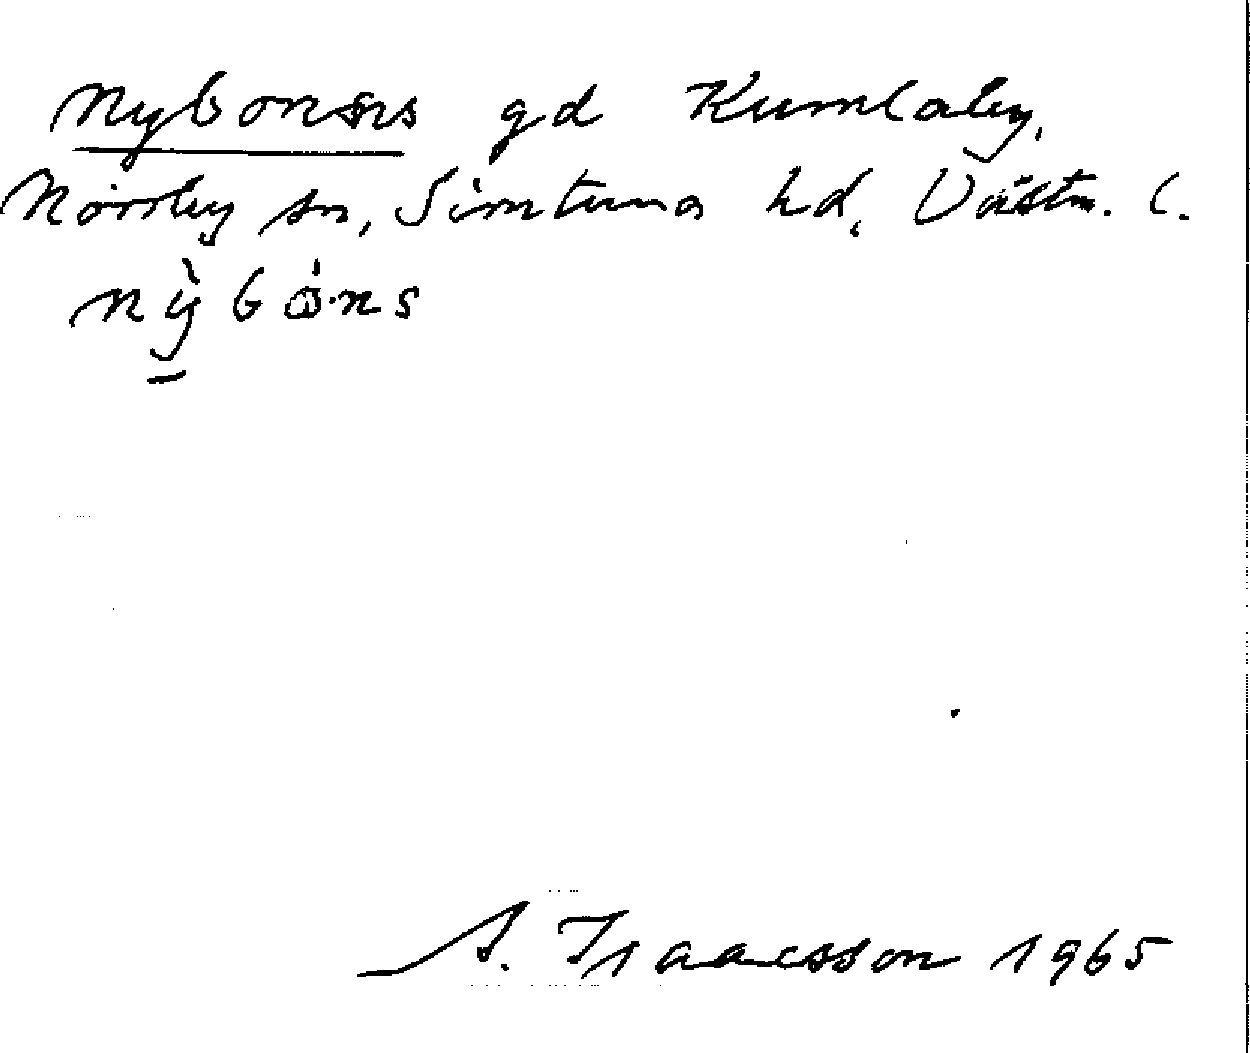 Nybonsns gd Kumlaby,
Nörrby sn, Simtuna hd, Västm. l.
A. Isaacsson 1965